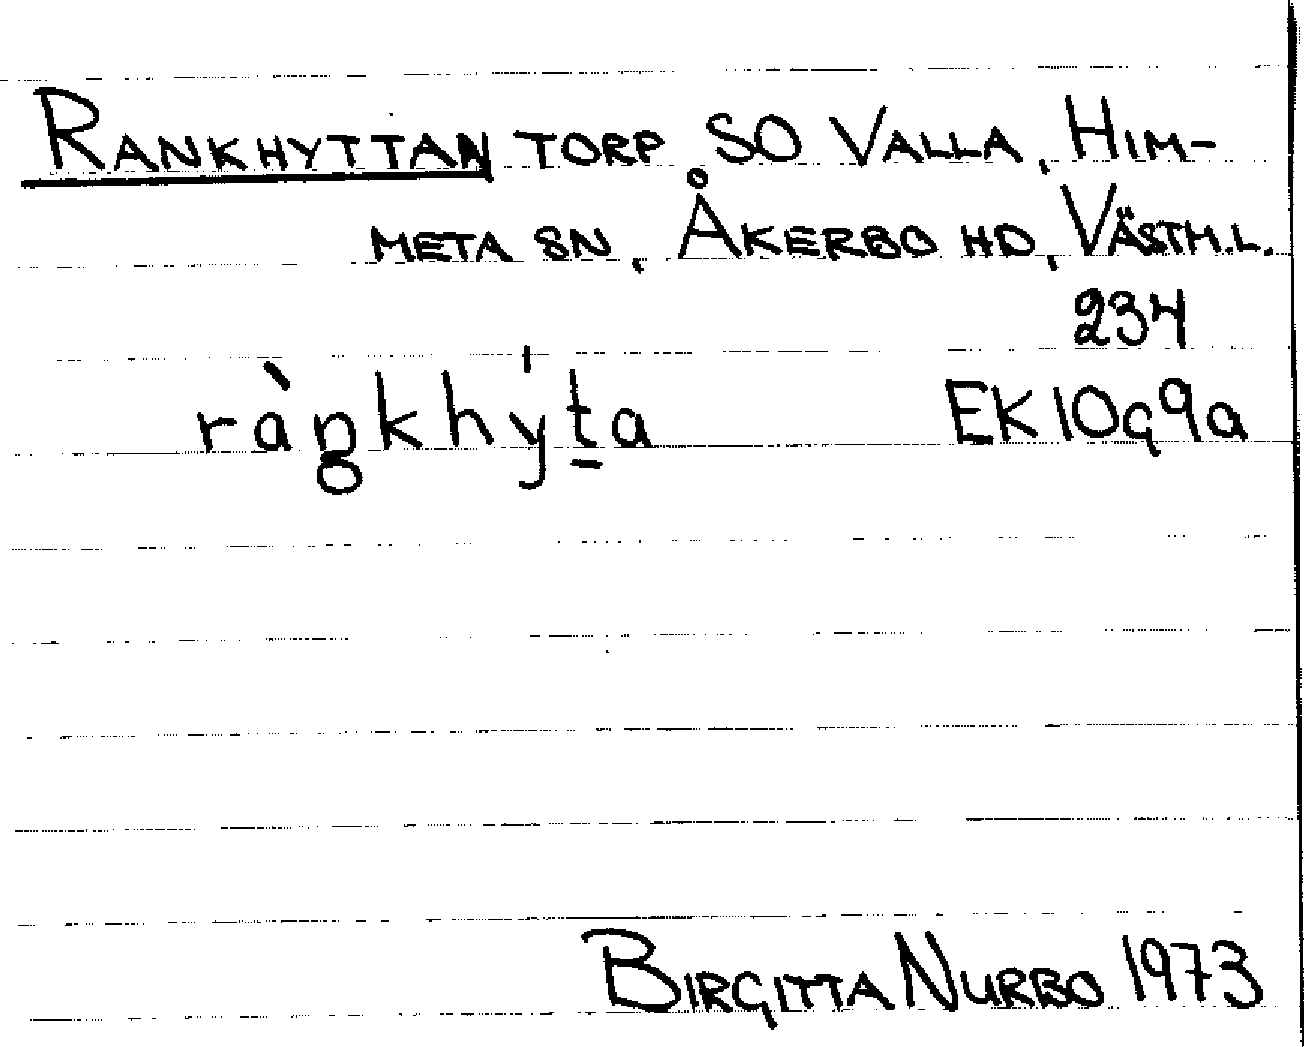 RANKHYTTAN TORP SO VALLA, HIM-
META SN, ÅKERBO HD, VÄSTM.L.
234
ràŋkhy̍ṯa EK 10G9a
BIRGITTA NURBO 1973